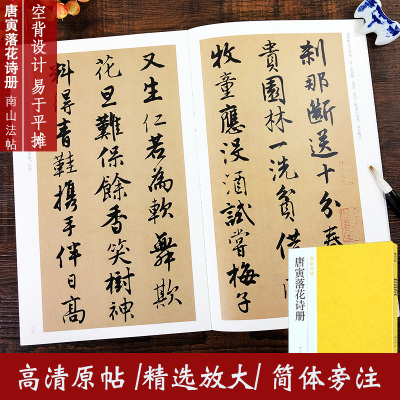 空背设计 易于平摊
唐寅落花诗册 南山法帖
刹那斷送十分春
貴園林一洗貧借
牧童應没酒試嘗梅子
又生仁若為軟舞欺
花旦難保餘香笑樹神
料得青鞋携手伴日高
唐寅落花诗册
高清原帖 /精选放大/ 简体旁注